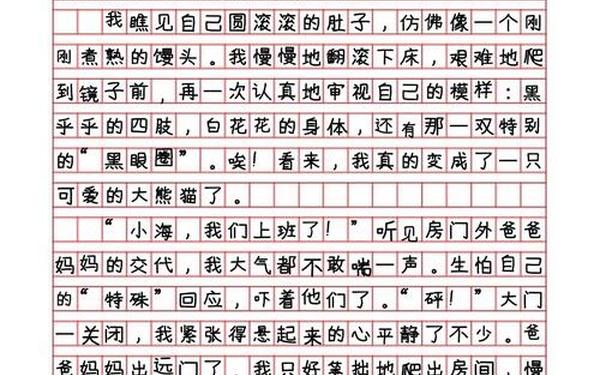 我瞧见自己圆滚滚的肚子，仿佛像一个刚
刚煮熟的馒头。我慢慢地翻滚下床，艰难地爬
到镜子前，再一次认真地审视自己的模样：黑
乎乎的四肢，白花花的身体，还有那一双特别
的“黑眼圈”。唉！看来，我真的变成了一只
可爱的大熊猫了。
“小海，我们上班了！”听见房门外爸爸
妈妈的交代，我大气都不敢喘一声。生怕自己
的“特殊”回应，吓着他们了。“砰！”大门
一关闭，我紧张得悬起来的心平静了不少。爸
爸妈妈出远门了，我只好笨拙地爬出房间，慢